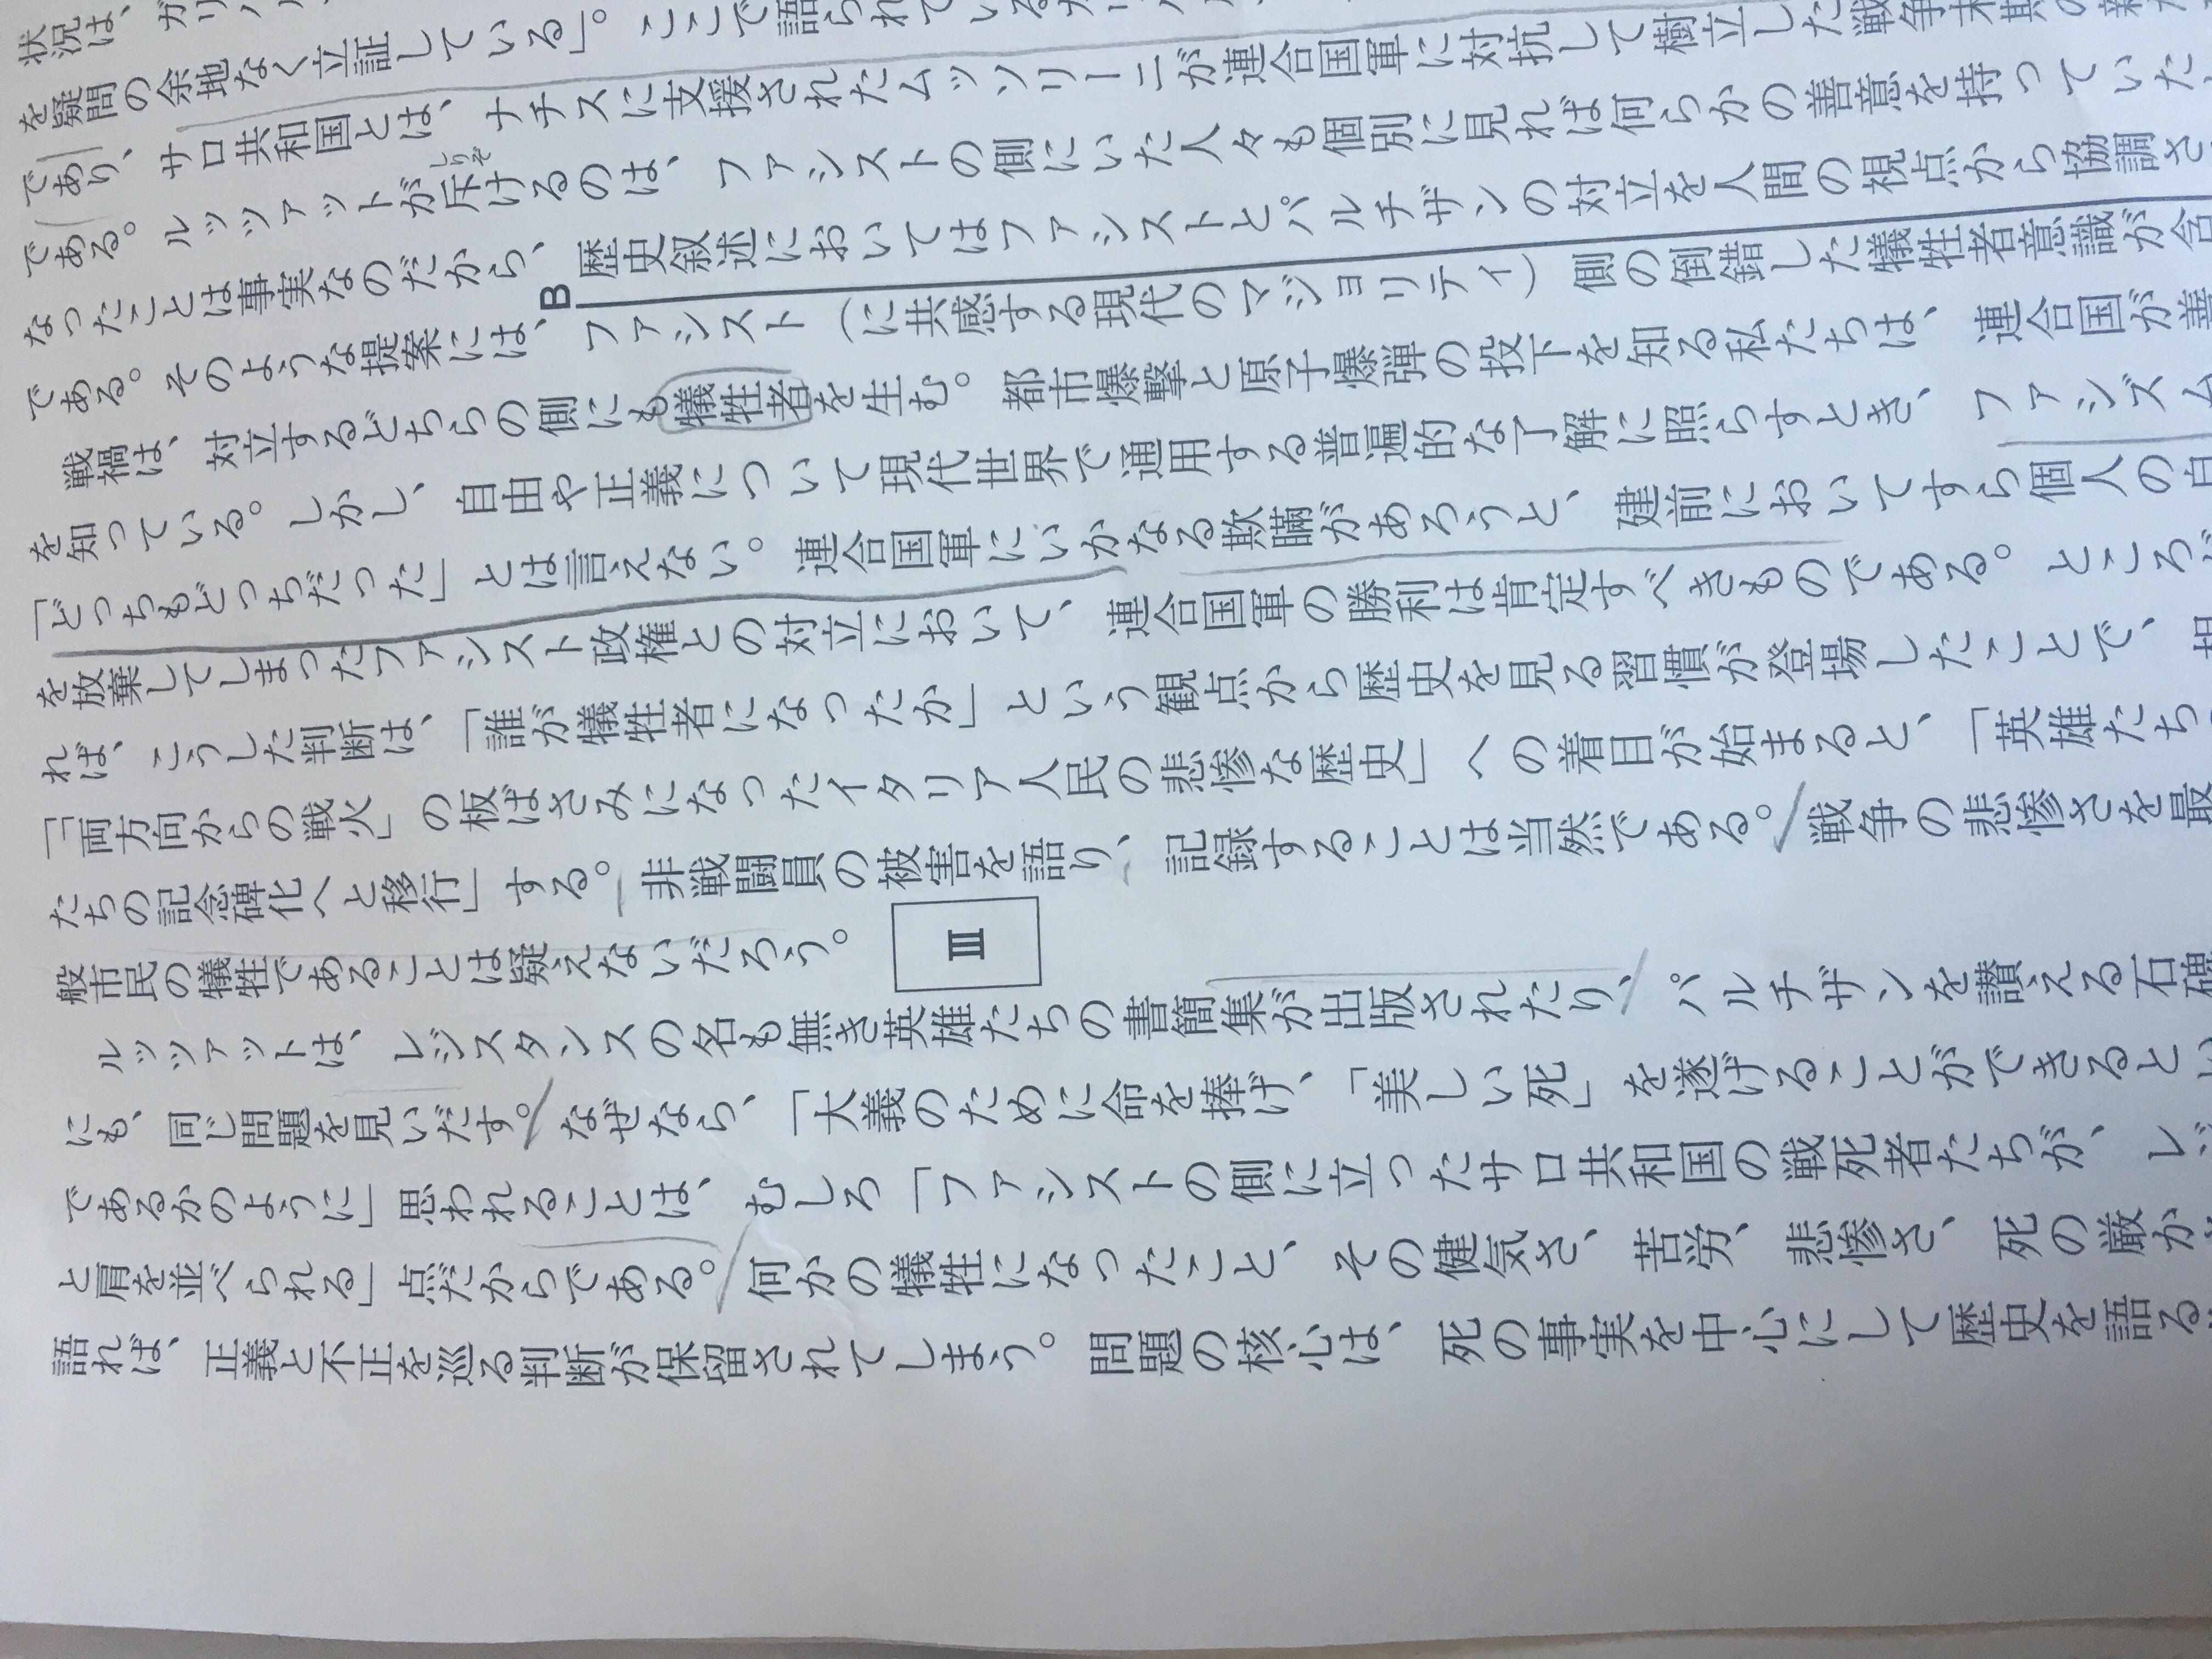 状況は、ガリ
を疑問の余地なく立証している」。ここで語られている
であり、サロ共和国とは、ナチスに支援されたムッソリーニが連合国軍に対抗して樹立した戦争末期の新た
である。ルッツァットが斥けるのは、ファシストの側にいた人々も個別に見れば何らかの善意を持っていた
しりぞ
なったことは事実なのだから、歴史叙述においてはファシストとパルチザンの対立を人間の視点から協調さ
B
である。そのような提案には、ファシスト(に共感する現代のマジョリティ)側の倒錯した犠牲者意識が含
戦禍は、対立するどちらの側にも犠牲者を生む。都市爆撃と原子爆弾の投下を知る私たちは、連合国が善
を知っている。しかし、自由や正義について現代世界で通用する普遍的な了解に照らすとき、ファシズム
「どっちもどっちだった」とは言えない。連合国軍にいかなる欺瞞があろうと、建前においてすら個人の自
を放棄してしまったファシスト政権との対立において、連合国軍の勝利は肯定すべきものである。ところが
れば、こうした判断は、「誰が犠牲者になったか」という観点から歴史を見る習慣が登場したことで、相
「「両方向からの戦火」の板ばさみになったイタリア人民の悲惨な歴史」への着目が始まると、「英雄たち
たちの記念碑化へと移行」する。非戦闘員の被害を語り、記録することは当然である。戦争の悲惨さを最
般市民の犠牲であることは疑えないだろう。
Ⅲ
ルッツァットは、レジスタンスの名も無き英雄たちの書簡集が出版されたり、パルチザンを讃える石碑
にも、同じ問題を見いだす。なぜなら、「大義のために命を捧げ、「美しい死」を遂げることができるとい
であるかのように」思われることは、むしろ「ファシストの側に立ったサロ共和国の戦死者たちが、レジ
と肩を並べられる」点だからである。何かの犠牲になったこと、その健気さ、苦労、悲惨さ、死の厳か
語れば、正義と不正を巡る判断が保留されてしまう。問題の核心は、死の事実を中心にして歴史を語る